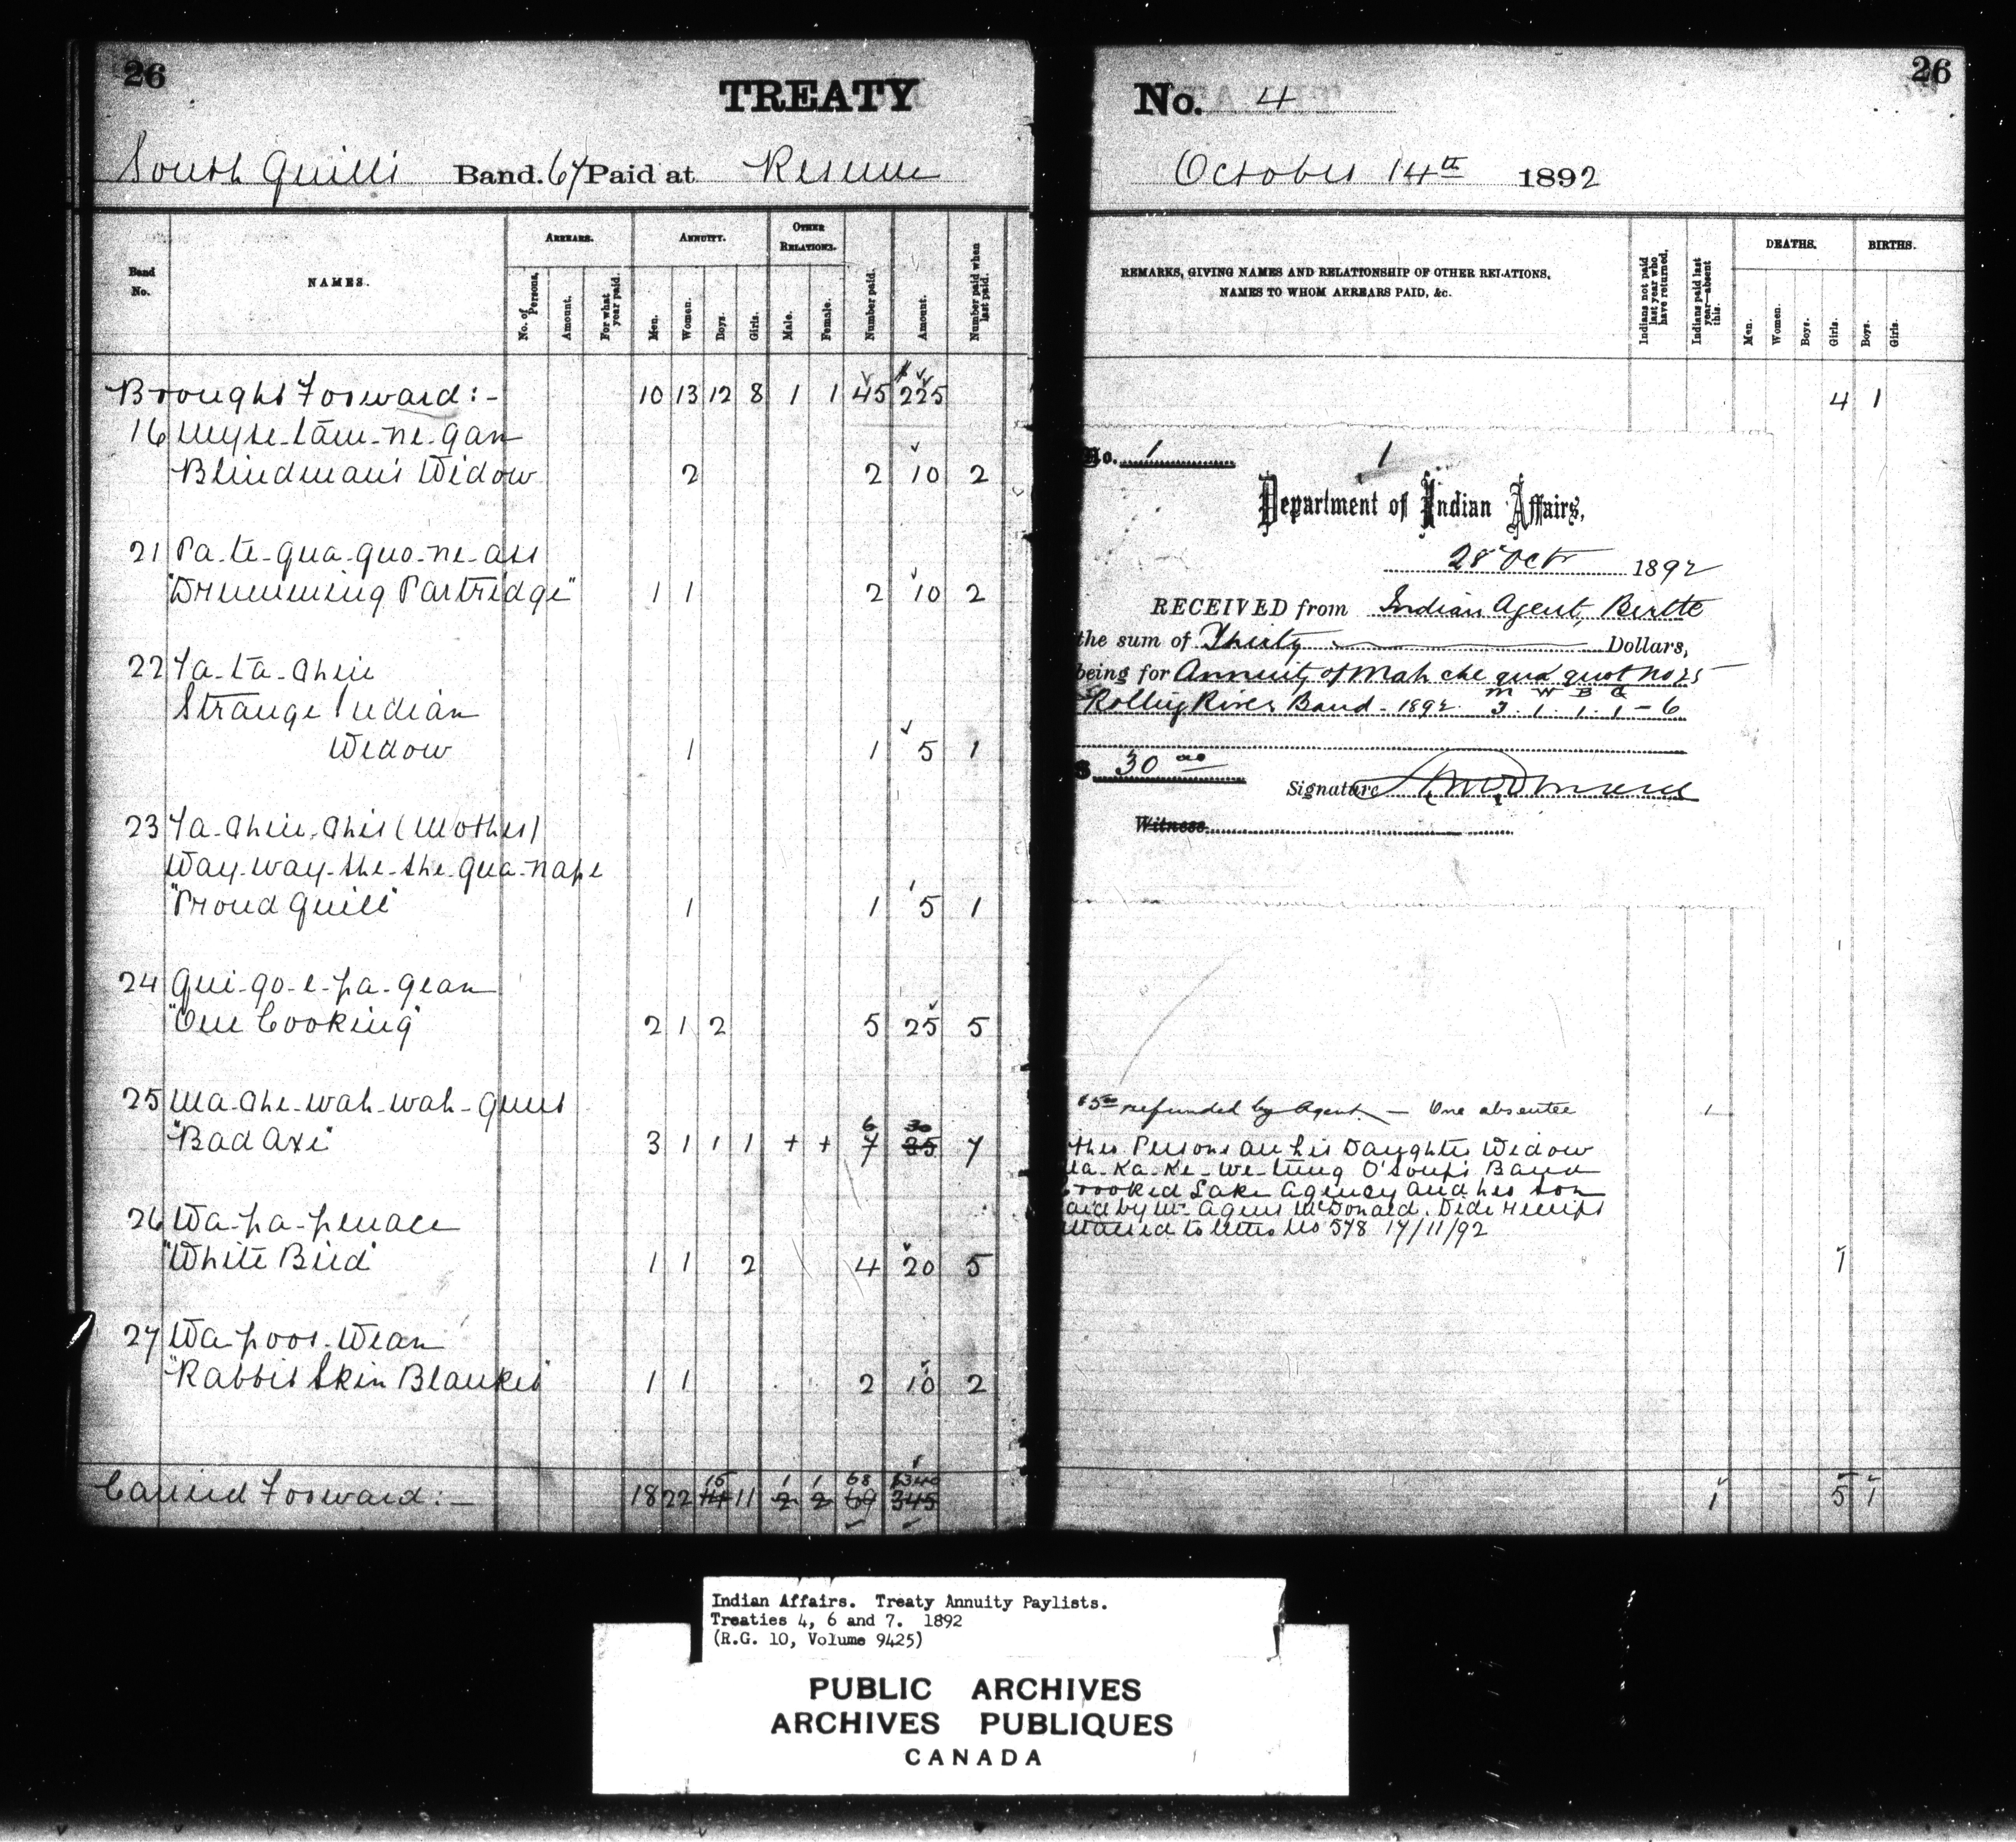 26
TREATY
South Quill's Band. 67 Paid at Reserve
Band No.
NAMES.
ARREARS.
No. of Persons.
Amount.
For what year paid.
ANNUITY.
Men.
Women.
Boys.
Girls.
OTHER RELATIONS.
Male.
Female.
Number paid.
Amount.
Number paid when last paid.
Brought Forward:- 10 13 12 8 1 1 45 $225
16
Blindman's Widow 2 2 10 2
21 Pa-te-qua-quo-ne-ass
"Drumming Partridge" 1 1 2 10 2
22 Ya-ta-chin
Strange Indian
Widow 1 1 5 1
23 Ya-chin-chis (Mother)
Way-way-she-she-qua-nape
"Proud Quill" 1 1 5 1
24 Qui-qo-e-pa-gean
"One Cooking" 2 1 2 5 25 5
25 Ma-che-wah-wah-quot
"Bad Axe" 3 1 1 1 + + 6 7 30 35 7
26 Wa-pa-penace
"White Bird" 1 1 2 4 20 5
27 Wa-poos-wean
"Rabbit Skin Blanket" 1 1 2 10 2
Carried Forward:- 18 22 15 11 1 2 1 2 68 69 $340 345
26
No. 4
October 14th 1892
REMARKS, GIVING NAMES AND RELATIONSHIP OF OTHER RELATIONS, NAMES TO WHOM ARREARS PAID, &c.
Indians not paid last year who have returned.
Indians paid last year—absent this.
DEATHS.
Men.
Women.
Boys.
Girls.
BIRTHS.
Boys.
Girls.
4 1
No. 1 1
Department of Indian Affairs,
28 Oct 1892
RECEIVED from Indian Agent, Birtle
the sum of Thirty Dollars,
being for Annuity of Mah che qua quot No 25
M W B G
Rolling River Band - 1892 3. 1. 1. 1 - 6
$ 30 00
Signature
Witness
1
$5 00 refunded by Agent. — One absentee 1
ther Persons are his Daughter Widow
Ka-Ke-we-tung O'Soup's Band
Crooked Lake Agency and her son
aid by Mr Agent McDonald. Vide receipt
attached to letter No 578 17/11/92
1
1 5 1
Indian Affairs. Treaty Annuity Paylists.
Treaties 4, 6 and 7. 1892
(R.G. 10, Volume 9425)
PUBLIC ARCHIVES
ARCHIVES PUBLIQUES
CANADA